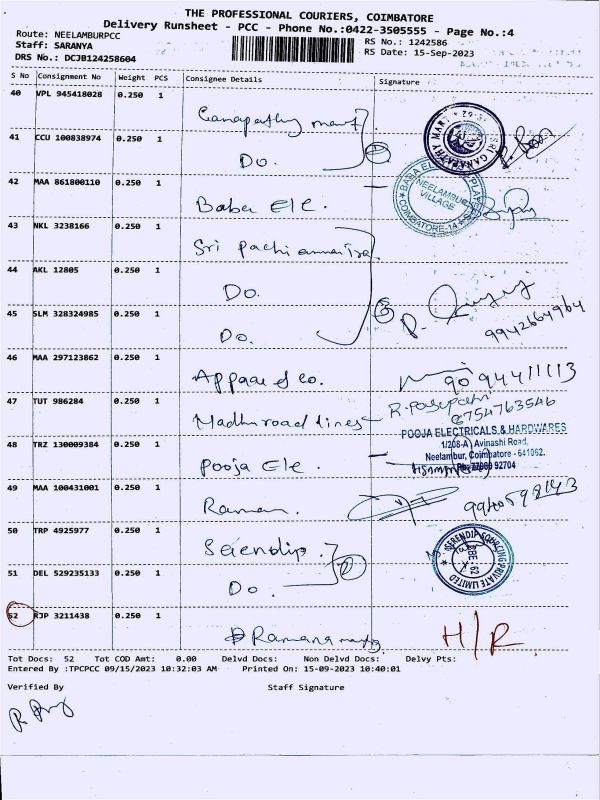 THE PROFESSIONAL COURIERS, COIMBATORE
Delivery Runsheet - PCC - Phone No.:0422-3505555 - Page No.:4
Route: NEELAMBURPCC
RS No.: 1242586
Staff: SARANYA
RS Date: 15-Sep-2023
DRS No.: DCJB124258604
S No Consignment No Weight PCS Consignee Details Signature
40 VPL 945418028 0.250 1
Ganapathy mart
SRI GANAPATHY MART
41 CCU 100838974 0.250 1
Do.
42 MAA 861800110 0.250 1
Baba Ele.
NEELAMBUR
VILLAGE
COIMBATORE-14
43 NKL 3238166 0.250 1
Sri
44 AKL 12805 0.250 1
Do.
45 SLM 328324985 0.250 1
Do.
9942664964
46 MAA 297123862 0.250 1
Appaar & co.
9094411113
47 TUT 986284 0.250 1
Madhu road lines
8754763546
POOJA ELECTRICALS & HARDWARES
1/208-A, Avinashi Road,
Neelambur, Coimbatore - 641062.
48 TRZ 130009384 0.250 1
Pooja Ele.
49 MAA 100431001 0.250 1
Raman.
50 TRP 4925977 0.250 1
Serendip.
SERENDIA SOURCING PRIVATE LIMITED
51 DEL 529235133 0.250 1
Do.
2
52 RJP 3211438 0.250 1
H/R
Tot Docs: 52 Tot COD Amt: 0.00 Delvd Docs: Non Delvd Docs: Delvy Pts:
Entered By :TPCPCC 09/15/2023 10:32:03 AM Printed On: 15-09-2023 10:40:01
Verified By Staff Signature